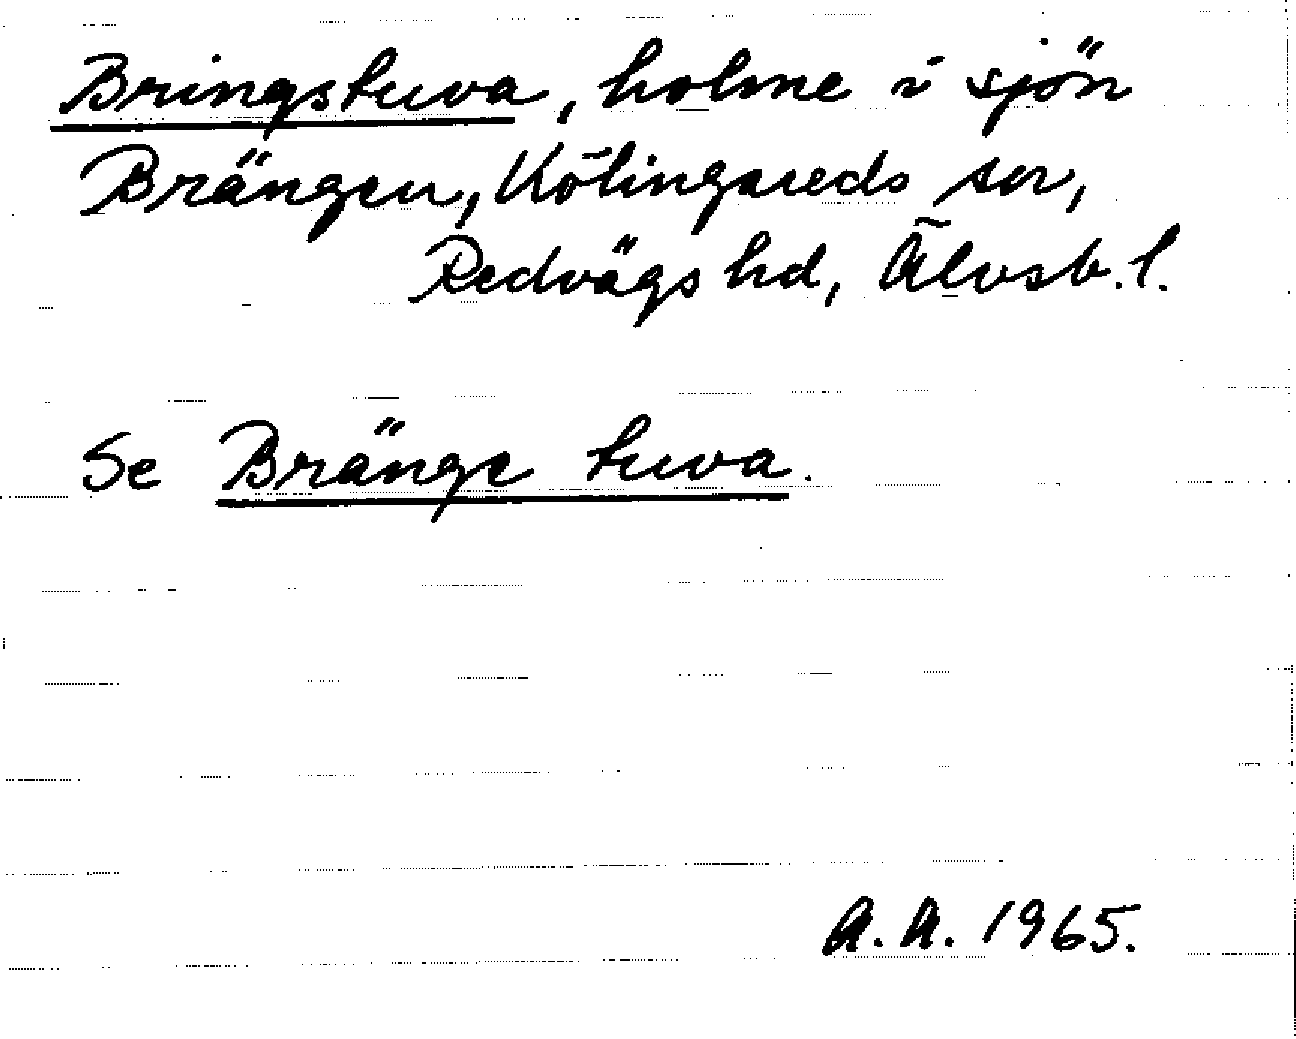 Bringstuva, holme i sjön
Brängen, Kölingareds sn,
Redvägs hd, Älvsb. l.
Se Bränge tuva.
A. A. 1965.